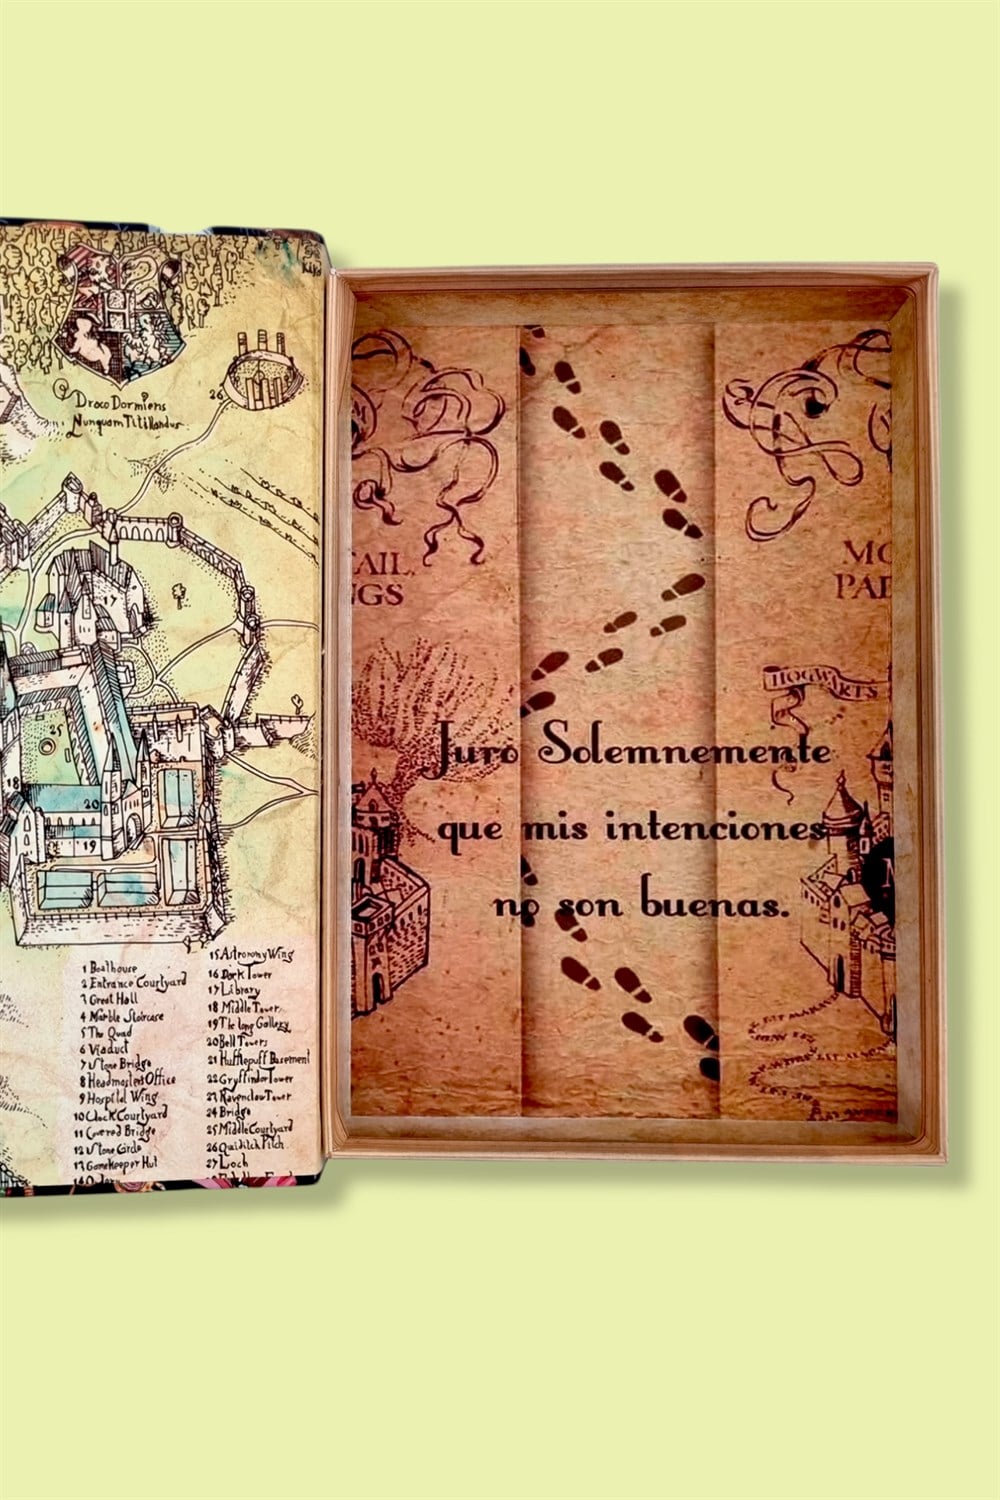 Draco Dormiens
Nunquam Titillandus
26
17
25
18
20
19
1 Boathouse
2 Entrance Courtyard
3 Great Hall
4 Marble Staircase
5 The Quad
6 Viaduct
7 Stone Bridge
8 Headmasters Office
9 Hospital Wing
10 Clock Courtyard
11 Covered Bridge
12 Stone Circle
13 Gamekeeper Hut
15 Astronomy Wing
16 Dark Tower
17 Library
18 Middle Tower
19 The long Gallery
20 Bell Towers
21 Hufflepuff Basement
22 Gryffindor Tower
23 Ravenclaw Tower
24 Bridge
25 Middle Courtyard
26 Quidditch Pitch
27 Loch
AIL,
GS
MO
PAD
HOGWARTS
Juro Solemnemente
que mis intenciones
no son buenas.